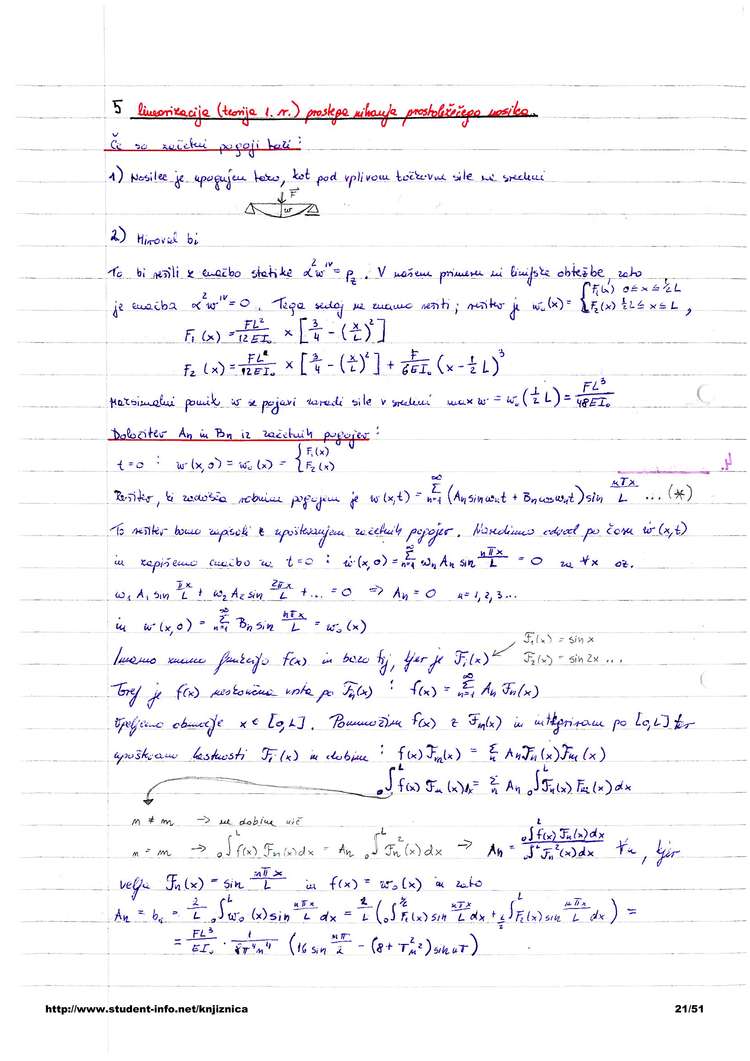 5 linearizacija (teorija 1. r.) prostega nihanja prostoležečega nosilca.
Če so začetni pogoji taki:
1) Nosilec je upognjen tako, kot pod vplivom točkovne sile na sredini
F
w
2) Miroval bi
To bi rešili z enačbo statike α²w^IV = p_z. V našem primeru ni linijske obtežbe, zato
je enačba α²w^IV = 0. Tega sedaj ne znamo rešiti; rešitev je w₀(x) = { F₁(x) 0 ≤ x ≤ ½L; F₂(x) ½L ≤ x ≤ L,
F₁(x) = FL²/12EI₀ × [3/4 − (x/L)²]
F₂(x) = FL²/12EI₀ × [3/4 − (x/L)²] + F/6EI₀ (x − ½L)³
Maksimalni pomik w se pojavi zaradi sile v sredini max w = w₀(½L) = FL³/48EI₀
Določitev An in Bn iz začetnih pogojev:
t=0 : w(x,0) = w₀(x) = { F₁(x); F₂(x)
Rešitev, ki zadošča robnim pogojem je w(x,t) = ∞Σn=1 (An sin ωnt + Bn cos ωnt) sin nπx/L ... (*)
To rešitev bomo zapisali z upoštevanjem začetnih pogojev. Naredimo odvod po času ẇ(x,t)
in zapišemo enačbo za t=0 : ẇ(x,0) = ∞Σn=1 ωn An sin nπx/L = 0 za ∀x oz.
ω₁ A₁ sin πx/L + ω₂ A₂ sin 2πx/L + ... = 0 => An = 0 n = 1, 2, 3...
in w(x,0) = ∞Σn=1 Bn sin nπx/L = w₀(x)
Imamo znano funkcijo f(x) in bazo tj, kjer je F₁(x) F₁(x) = sin x
F₂(x) = sin 2x ...
Torej je f(x) neskončna vrsta po Fn(x) : f(x) = ∞Σn=1 An Fn(x)
Vpeljemo območje x ∈ [0,L]. Pomnožim f(x) z Fm(x) in integriram po [0,L] ter
upoštevamo lastnosti Fi(x) in dobimo : f(x)Fm(x) = Σn An Fn(x) Fm(x)
₀∫ᴸ f(x) Fm(x)dx = Σn An ₀∫ᴸ Fn(x) Fm(x) dx
n ≠ m → ne dobimo nič
n = m → ₀∫ᴸ f(x) Fn(x)dx = An ₀∫ᴸ Fn²(x) dx → An = ₀∫ᴸ f(x) Fn(x)dx / ₀∫ᴸ Fn²(x)dx ∀n, kjer
velja Fn(x) = sin nπx/L in f(x) = w₀(x) in zato
An = bn = 2/L ₀∫ᴸ w₀(x) sin nπx/L dx = 2/L (₀∫ᴸ/² F₁(x) sin nπx/L dx + L/2∫ᴸ F₂(x) sin nπx/L dx) =
= FL³/EI₀ · 1/8π⁴n⁴ (16 sin nπ/2 − (8 + π²n²) sin nπ)
http://www.student-info.net/knjiznica
21/51